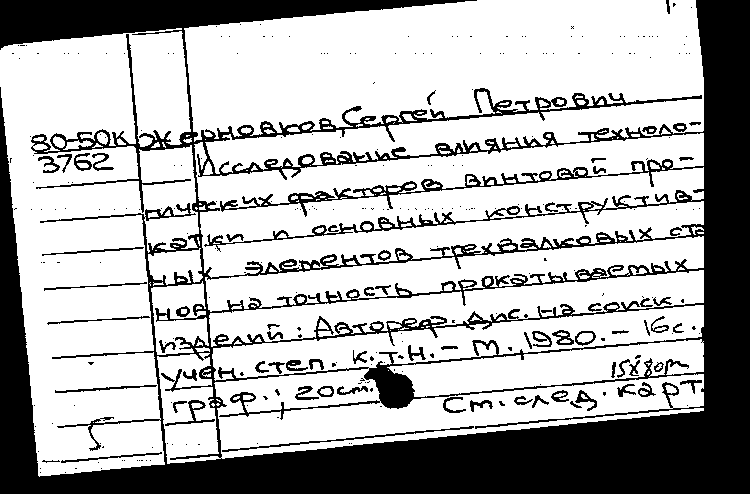 80-50к Жерновков, Сергей Петрович
3762 Исследование влияния техноло-
гических факторов винтовой про-
катки и основных конструктив-
ных элементов трехвалковых ста
нов на точность прокатываемых
изделий: Автореф. дис. на соиск.
учен. степ. к.т.н. - М., 1980. - 16 с.,
граф.; 20 см.
См. след. карт.